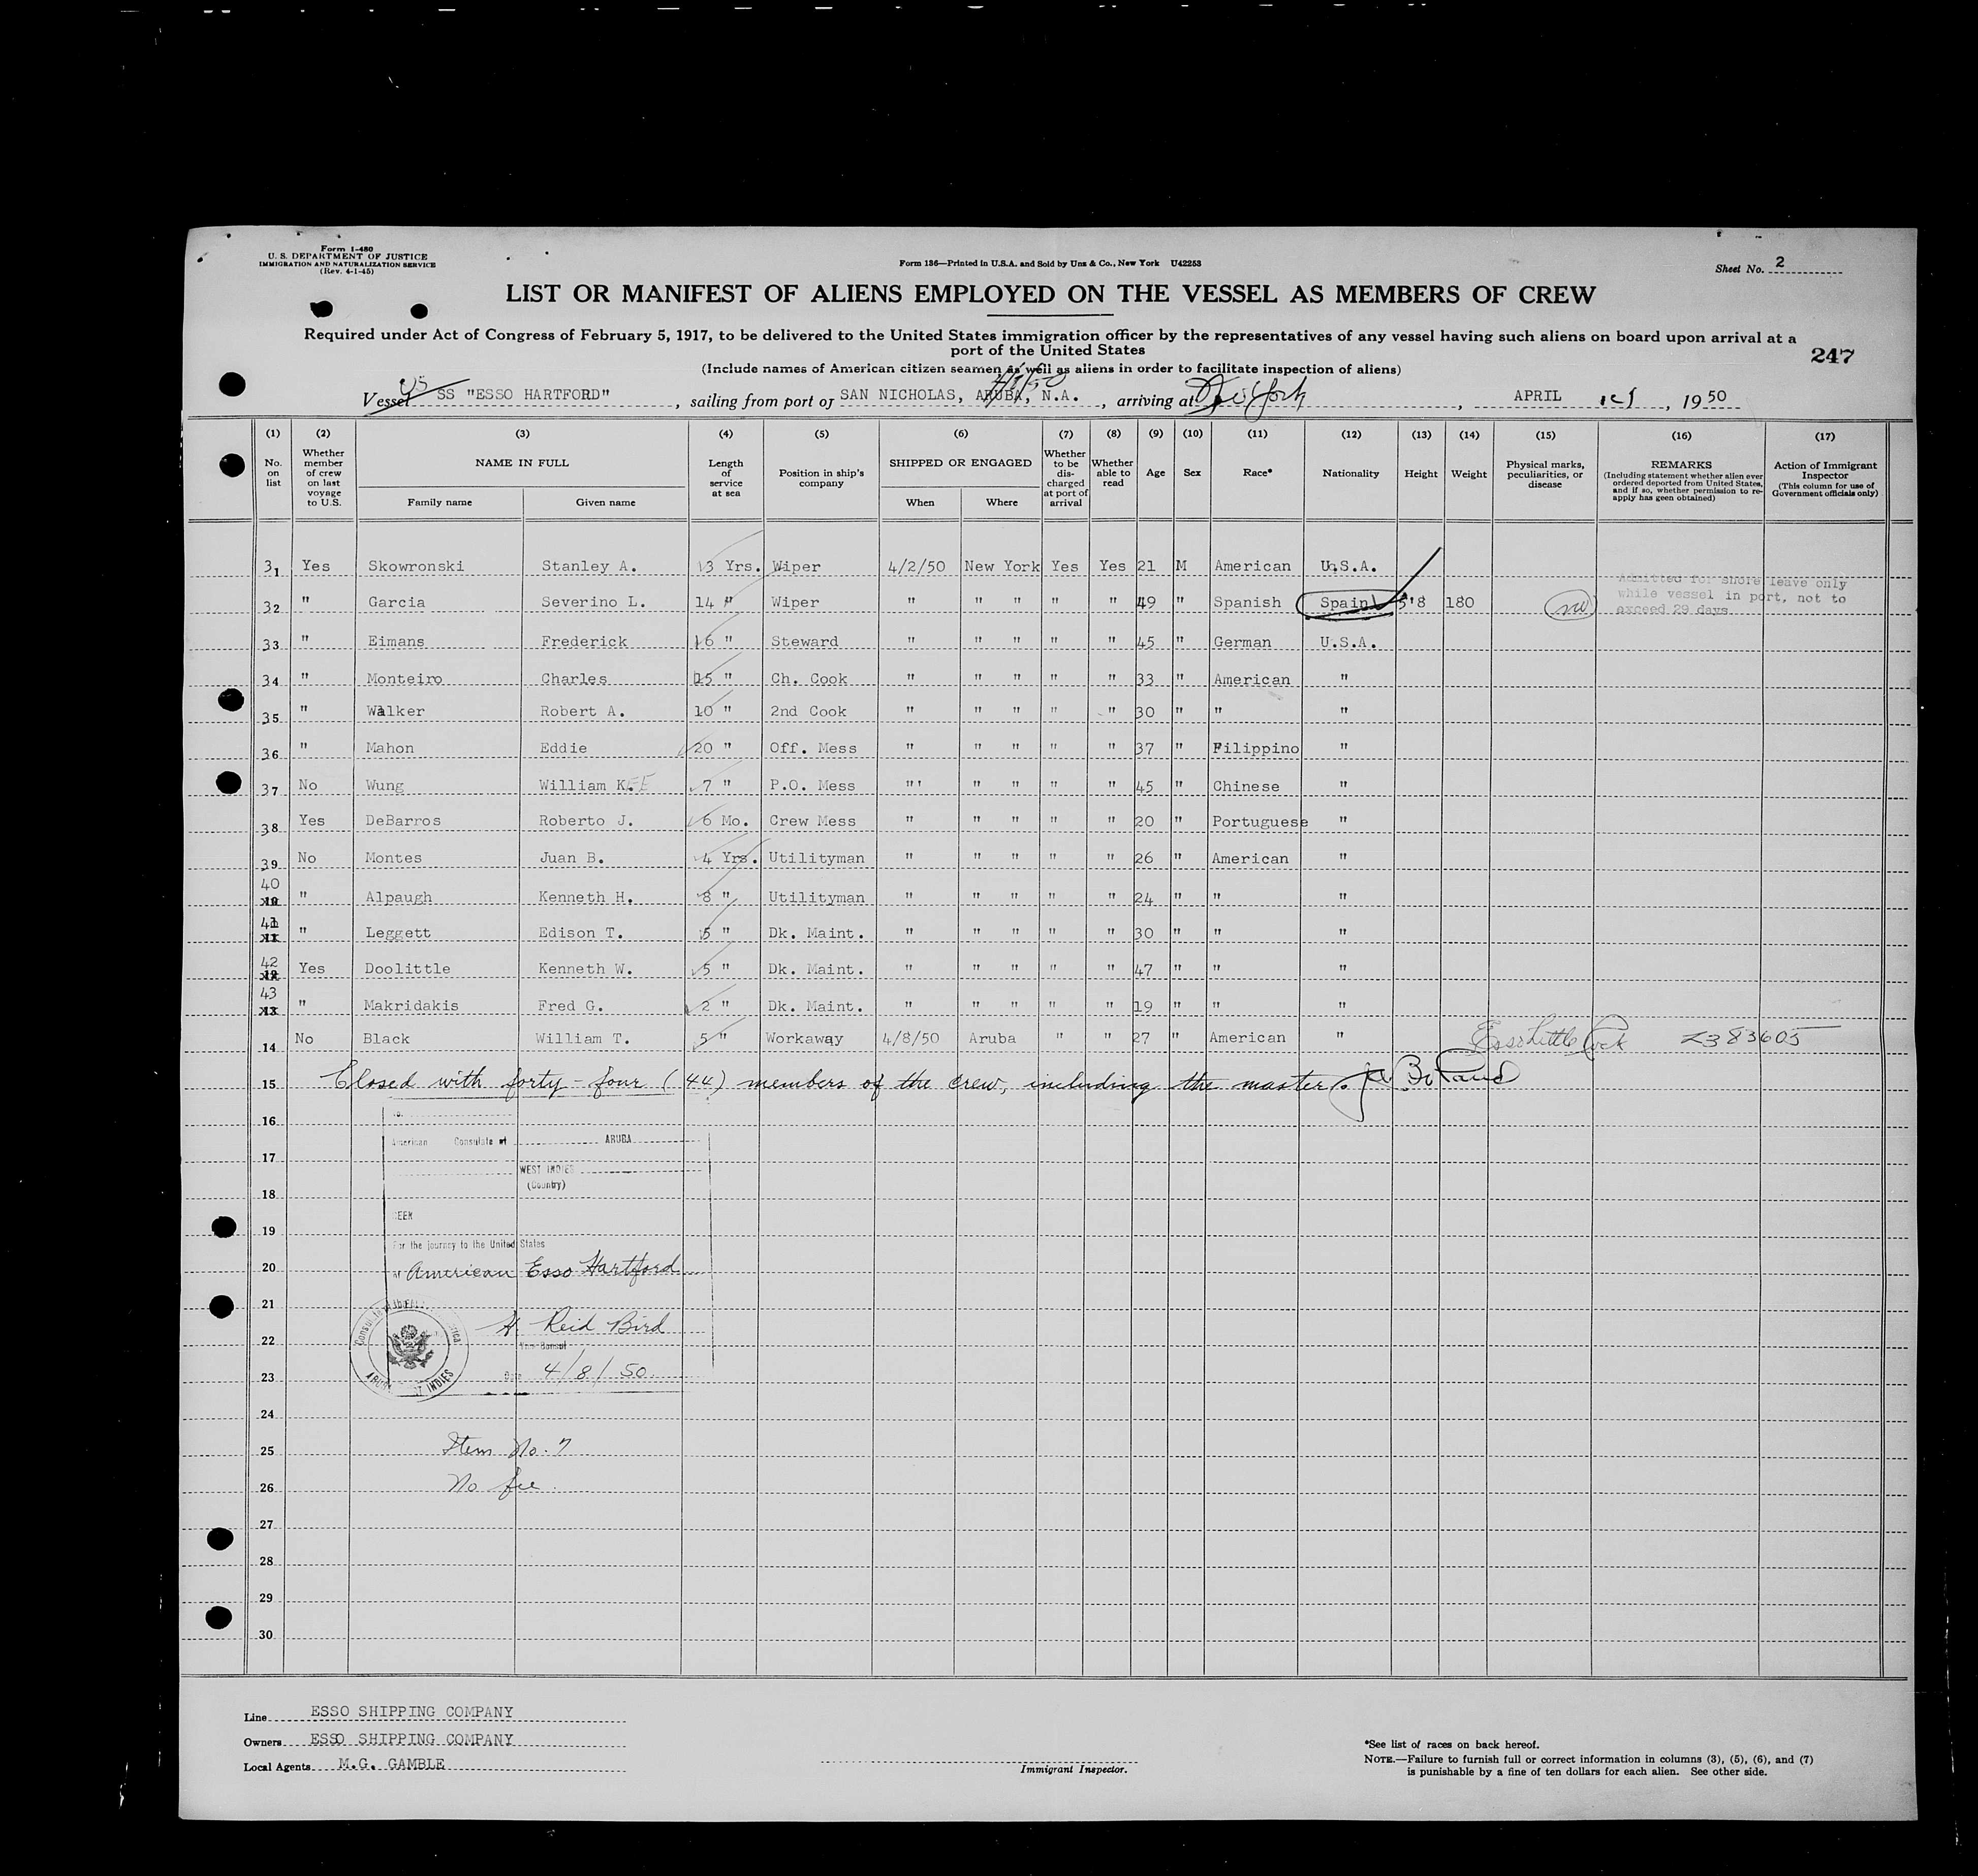 Form I-480
U. S. DEPARTMENT OF JUSTICE
IMMIGRATION AND NATURALIZATION SERVICE
(Rev. 4-1-45)
Form 136—Printed in U.S.A. and Sold by Unz & Co., New York U42253
Sheet No. 2
LIST OR MANIFEST OF ALIENS EMPLOYED ON THE VESSEL AS MEMBERS OF CREW
Required under Act of Congress of February 5, 1917, to be delivered to the United States immigration officer by the representatives of any vessel having such aliens on board upon arrival at a
port of the United States
247
(Include names of American citizen seamen as well as aliens in order to facilitate inspection of aliens)
4/8/50
US
Vessel SS "ESSO HARTFORD", sailing from port of SAN NICHOLAS, ARUBA, N.A., arriving at APRIL, 1950
(1) (2) (3) (4) (5) (6) (7) (8) (9) (10) (11) (12) (13) (14) (15) (16) (17)
No. on list Whether member of crew on last voyage to U.S. NAME IN FULL Length of service at sea Position in ship's company SHIPPED OR ENGAGED Whether to be discharged at port of arrival Whether able to read Age Sex Race* Nationality Height Weight Physical marks, peculiarities, or disease REMARKS (Including statement whether alien ever ordered deported from United States, and if so, whether permission to re-apply has geen obtained) Action of Immigrant Inspector (This column for use of Government officials only)
Family name Given name When Where
31 Yes Skowronski Stanley A. 3 Yrs. Wiper 4/2/50 New York Yes Yes 21 M American U.S.A.
32 " Garcia Severino L. 14 " Wiper " " " " " 49 " Spanish Spain 5'8 180 no Admitted for shore leave only while vessel in port, not to exceed 29 days
33 " Eimans Frederick 16 " Steward " " " " " 45 " German U.S.A.
34 " Monteiro Charles 15 " Ch. Cook " " " " " 33 " American "
35 " Walker Robert A. 10 " 2nd Cook " " " " " 30 " " "
36 " Mahon Eddie 20 " Off. Mess " " " " " 37 " Filippino "
37 No Wung William KEE 7 " P.O. Mess " " " " " 45 " Chinese "
38 Yes DeBarros Roberto J. 6 Mo. Crew Mess " " " " " 20 " Portuguese "
39 No Montes Juan B. 4 Yrs. Utilityman " " " " " 26 " American "
40 " Alpaugh Kenneth H. 8 " Utilityman " " " " " 24 " " "
41 " Leggett Edison T. 5 " Dk. Maint. " " " " " 30 " " "
42 Yes Doolittle Kenneth W. 5 " Dk. Maint. " " " " " 47 " " "
43 " Makridakis Fred G. 2 " Dk. Maint. " " " " " 19 " " "
14 No Black William T. 5 " Workaway 4/8/50 Aruba " " 27 " American " Esso Little Rock Z383605
15 Closed with forty-four (44) members of the crew, including the master.
16
American Consulate at ARUBA
17
WEST INDIES
(Country)
18
SEEN
19
For the journey to the United States
20 American Esso Hartford
21
22 H. Reid Bird
Vice Consul
23 Date 4/8/50
24
25 Item No. 7
26 No fee.
27
28
29
30
Line ESSO SHIPPING COMPANY
Owners ESSO SHIPPING COMPANY
Local Agents M.G. GAMBLE
Immigrant Inspector.
*See list of races on back hereof.
NOTE.—Failure to furnish full or correct information in columns (3), (5), (6), and (7)
is punishable by a fine of ten dollars for each alien. See other side.